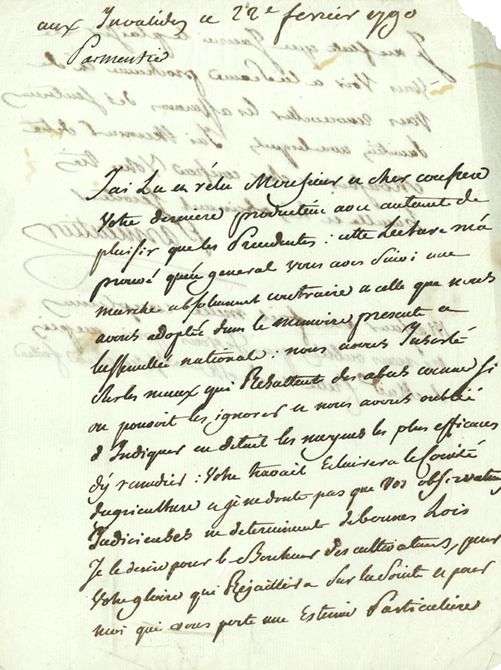 aux Invalides ce 22e fevrier 1790
Parmentier
J'ai Lu et rélu Monsieur et cher confrere
Votre derniere production avec autant de
plaisir que les Precedentes : cette Lecture m'a
prouvé qu'en general vous avés Suivi une
marche absolument contraire a celle que nous
avons adoptée dans le memoire presenté a
l'assemblée national : nous avons Insisté
Sur les maux qui Resultent des abus comme Si
on pouvoit les ignorer et nous avons oublié
d'Indiquer en detail les moyens les plus efficaces
d'y remedier : Votre travail Eclairera le Comité
d'agriculture et je ne doute pas que Vos observations
Judicieuses ne determinent de bonnes Lois
Je le desire pour le Bonheur des cultivateurs, pour
Votre gloire qui Rejaillira Sur la Societé et pour
moi qui vous porte une Estime Particuliere